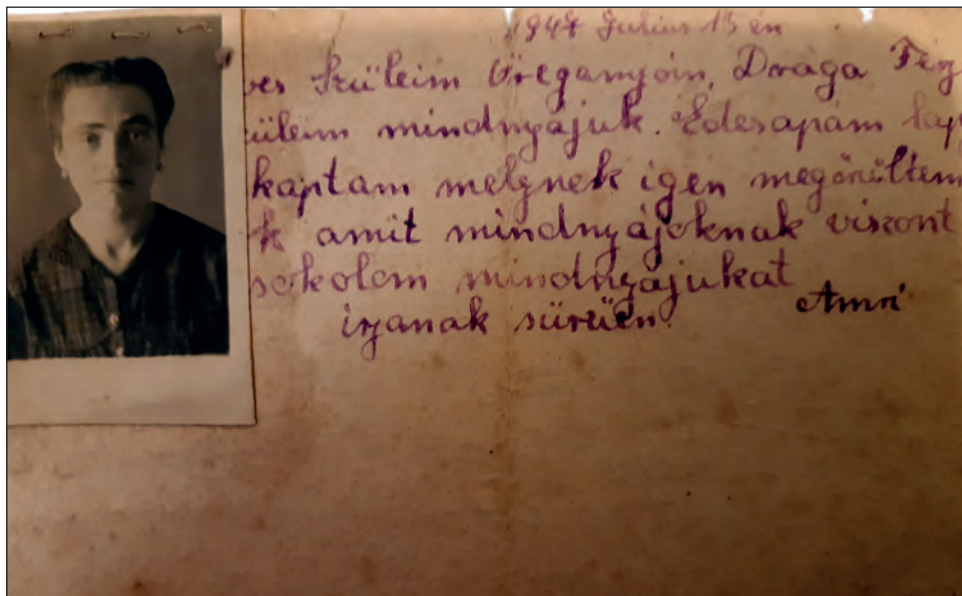 1947 Julius 13 én
ves Szüleim Öreganyóin, Draga Férj
üleim mindnyájuk. Édesapám lap
kaptam melynek igen megörültem
k amit mindnyájoknak viszont
sokolom mindnyájukat
irjanak sürüen. Amri